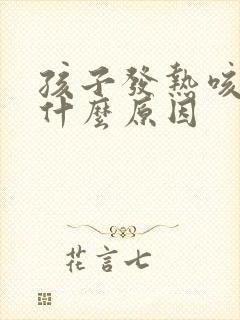 孩子發熱咳
什麼原因
花言七